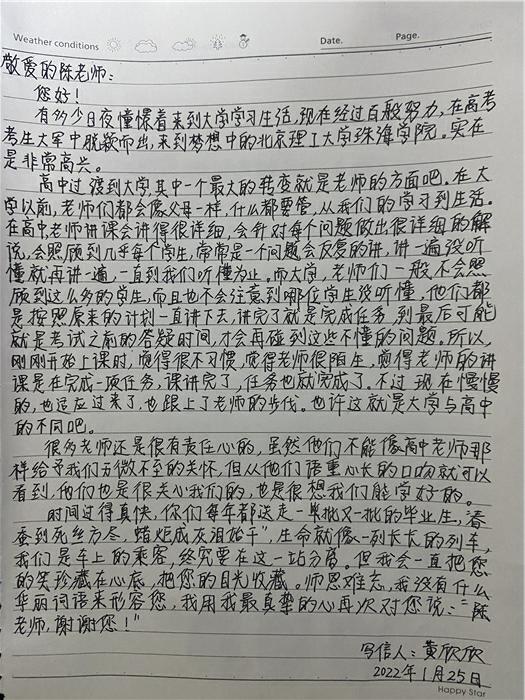 Weather conditions Date. Page.
敬爱的陈老师：
您好！
有多少日夜憧憬着来到大学学习生活，现在经过百般努力，在高考
考生大军中脱颖而出，来到梦想中的北京理工大学珠海学院。实在
是非常高兴。
高中过渡到大学，其中一个最大的转变就是老师的方面吧。在大
学以前，老师们都会像父母一样，什么都要管，从我们的学习到生活。
在高中老师讲课会讲得很详细，会针对每个问题做出很详细的解
说，会照顾到几乎每个学生，常常是一个问题会反复的讲，讲一遍没听
懂就再讲一遍，一直到我们听懂为止。而大学，老师们一般不会照
顾到这么多的学生，而且也不会注意到哪位学生没听懂，他们都
是按照原来的计划一直讲下去，讲完了就是完成任务，到最后可能
就是考试之前的答疑时间，才会再碰到这些不懂的问题。所以，
刚刚开始上课时，觉得很不习惯，觉得老师很陌生，觉得老师的讲
课是在完成一项任务，课讲完了，任务也就完成了。不过现在慢慢
的，也适应过来了，也跟上了老师的步伐。也许这就是大学与高中
的不同吧。
很多老师还是很有责任心的，虽然他们不能像高中老师那
样给予我们无微不至的关怀，但从他们语重心长的口吻就可以
看到，他们也是很关心我们的，也是很想我们能学好的。
时间过得真快，你们每年都送走一批又一批的毕业生，“春
蚕到死丝方尽，蜡炬成灰泪始干”，生命就像一列长长的列车，
我们是车上的乘客，终究要在这一站分离。但我会一直把您
的笑珍藏在心底，把您的目光收藏。师恩难忘，我没有什么
华丽词语来形容您，我用我最真挚的心再次对您说：“陈
老师，谢谢您！”
写信人：黄欣欣
2022年1月25日
Happy Star